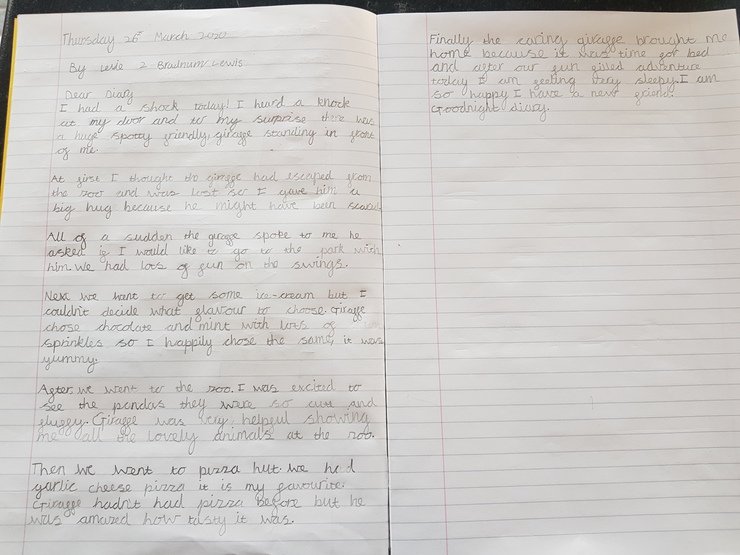 Thursday 26th March 2020
By Leslie Z Bradnum-Lewis
Dear Diary
I had a shock today! I heard a knock
at my door and to my surprise there was
a huge spotty friendly giraffe standing in front
of me.
At first I thought the giraffe had escaped from
the zoo and was lost so I gave him a
big hug because he might have been scared.
All of a sudden the giraffe spoke to me he
asked if I would like to go to the park with
him. we had lots of fun on the swings.
Next we went to get some ice-cream but I
couldn't decide what flavour to choose. Giraffe
chose chocolate and mint with lots of
sprinkles so I happily chose the same, it was
yummy.
After we went to the zoo. I was excited to
see the pandas they were so cute and
fluffy. Giraffe was very helpful showing
me all the lovely animals at the zoo.
Then we went to pizza hut. we had
garlic cheese pizza it is my favourite.
Giraffe hadn't had pizza before but he
was amazed how tasty it was.
Finally the caring giraffe brought me
home because it was time for bed
and after our fun filled adventure
today I am feeling very sleepy. I am
so happy I have a new friend.
Goodnight diary.